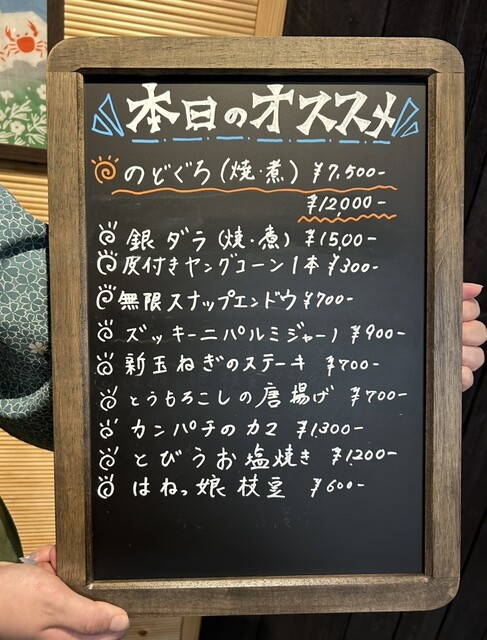 本日のオススメ
のどぐろ(焼・煮) ¥7,500-
¥12,000-
銀ダラ(焼・煮) ¥15,00-
皮付きヤングコーン1本 ¥300-
無限スナップエンドウ ¥700-
ズッキーニパルミジャーノ ¥900-
新玉ねぎのステーキ ¥700-
とうもろこしの唐揚げ ¥700-
カンパチのカマ ¥1,300-
とびうお塩焼き ¥1,200-
はねっ娘枝豆 ¥600-